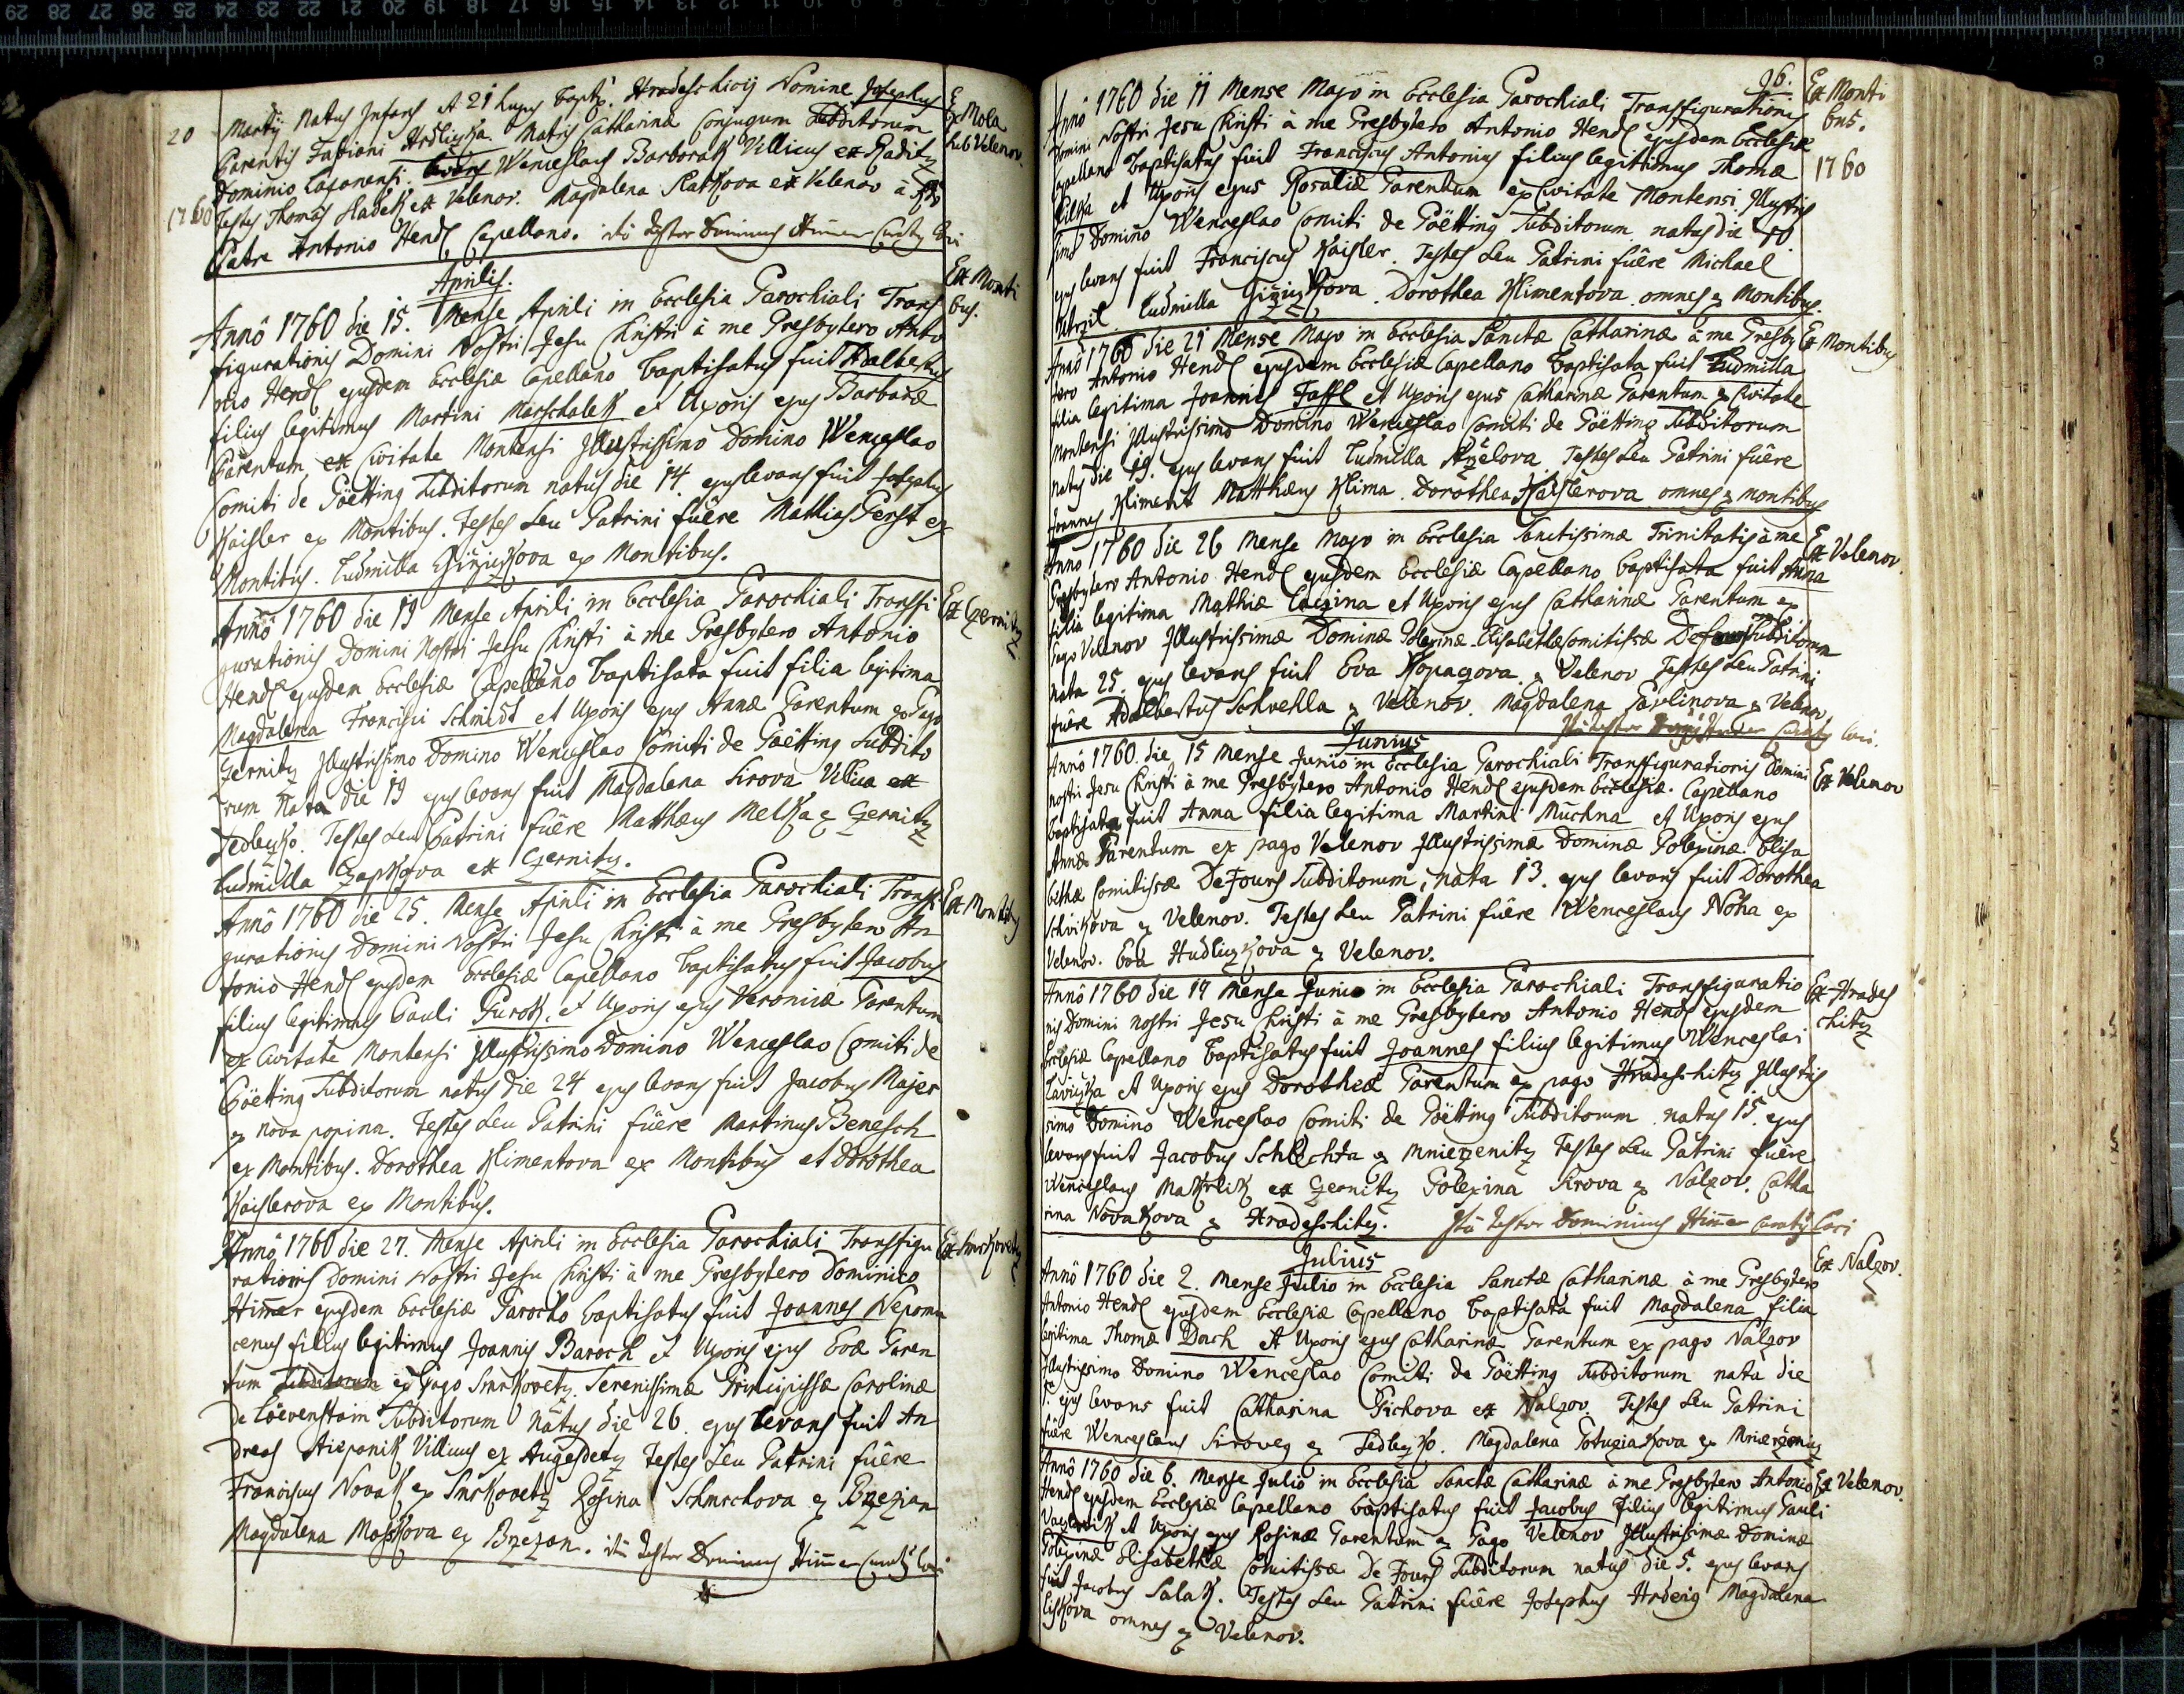 20 Martij Natus Infans et 21 hujus Baptz. Hradeschicij Nomine Josephus
Parentis Fabiani Hrdliczka Matris Catharina Conjugum Subditorum
Dominio Levans Wenceslaus Barborak Villicus ex Raditz
1760 Testes Thomas Sladek ex Velenov. Magdalena Slatkova ex Velenov à
Patre Antonio Hendl Capellano. ità testor Dominicus Himer Curatus loci
Ex Mola
sub Velenov.
Aprilis.
Ex Monti
bus.
Annô 1760 die 15. Mense Aprili in Ecclesia Parochiali Trans
figurationis Domini Nostri Jesu Christi à me Presbytero Anto
nio Hendl ejusdem Ecclesiæ Capellano baptisatus fuit Adalbertus
filius legitimus Martini Marschalek et Uxoris ejus Barbaræ
Parentum ex Civitate Montensi Illustrissimo Domino Wenceslao
Comiti de Göetting Subditorum natus die 14. ejus levans fuit Josephus
Kaisler ex Montibus. Testes seu Patrini fuêre Mathias Gerst ex
Montibus. Ludmilla Giziczkova ex Montibus.
Ex Czernitz
Annô 1760 die 19 Mense Aprili in Ecclesia Parochiali Transfi
gurationis Domini Nostri Jesu Christi à me Presbytero Antonio
Hendl ejusdem Ecclesiæ Capellano baptisata fuit filia legitima
Magdalena Francisci Schmidt et Uxoris ejus Annæ Parentum ex Pago
Czernitz Illustrissimo Domino Wenceslao Comiti de Goëtting Subdito
rum Nata die 19 ejus levans fuit Magdalena Sirova Villica ex
Sedleczko. Testes seu Patrini fuêre Matthæus Melka ex Czernitz
Ludmilla Czapkova ex Czernitz.
Ex Montibus
Annô 1760 die 25. Mense Aprili in Ecclesia Parochiali Transfi
gurationis Domini Nostri Jesu Christi à me Presbytero An
tonio Hendl ejusdem Ecclesiæ Capellano baptisatus fuit Jacobus
filius legitimus Pauli Turok. et Uxoris ejus Veronicæ Parentum
ex Civitate Montensi Illustrissimo Domino Wenceslao Comiti de
Göetting Subditorum natus die 24 ejus levans fuit Jacobus Majer
ex nova popina. Testes seu Patrini fuêre Martinus Benesch
ex Montibus. Dorothea Klimentova ex Montibus et Dorothea
Kaislerova ex Montibus.
Ex Smrkovetz
Annô 1760 die 27. Mense Aprili in Ecclesia Parochiali Transfigu
rationis Domini Nostri Jesu Christi à me Presbytero Dominico
Himer ejusdem Ecclesiæ Parocho baptisatus fuit Joannes Nepomu
cenus filius legitimus Joannis Baroch et Uxoris ejus Evæ Paren
tum Subditorum ex Pago Smrkovetz. Serenissimæ Principissæ Carolinæ
de Löevenstain Subditorum Natus die 26 ejus levans fuit An
dreas Stiepanik Villicus ex Augesdetz Testes seu Patrini fuêre
Franciscus Novak ex Smrkovetz Rosina Schmrchova ex Brzezan
Magdalena Maskova ex Brzezan. ità testor Dominicus Himer Curatus loci
Ex Monti
bus.
1760
Annô 1760 die 11 Mense Majo in Ecclesia Parochiali Transfigurationis
Domini Nostri Jesu Christi à me Presbytero Antonio Hendl ejusdem Ecclesiæ
Capellano baptisatus fuit Franciscus Antonius filius legitimus Thomæ
Kilka et Uxoris ejus Rosaliæ Parentum ex Civitate Montensi Illustris
simo Domino Wenceslao Comiti de Göetting Subditorum natus die 10
ejus levans fuit Franciscus Kaisler. Testes seu Patrini fuêre Michael
Ludmilla Giziczkova. Dorothea Klimentova omnes ex Montibus.
Ex Montibus
Annô 1760 die 21 Mense Majo in Ecclesia Sanctæ Catharinæ à me Presby
tero Antonio Hendl ejusdem Ecclesiæ Capellano baptisata fuit Ludmilla
filia legitima Joannis Taffl et Uxoris ejus Catharinæ Parentum ex Civitate
Montensi Illustrissimo Domino Wenceslao Comiti de Göetting Subditorum
natus die 19. ejus levans fuit Ludmilla Testes seu Patrini fuêre
Joannes Kliment Matthæus Klima. Dorothea Kaislerova omnes ex montibus
Ex Velenov.
Anno 1760 die 26 Mense Majo in Ecclesia Sanctissimæ Trinitatis à me
Presbytero Antonio Hendl ejusdem Ecclesiæ Capellano baptisata fuit Anna
filia legitima Mathiæ et Uxoris ejus Catharinæ Parentum ex
Pago Velenov Illustrissimæ Dominæ Polexinæ Elisabethæ Comitissæ Defours Subditorum
nata 25. ejus levans fuit Eva Kopaczova ex Velenov Testes seu Patrini
fuêre Adalbertus Schvehla ex Velenov. Magdalena Pavlinova ex Velenov
Ità testor Himer Curatus loci.
Junius
Ex Velenov
Annô 1760. die 15 Mense Junio in Ecclesia Parochiali Transfigurationis Domini
nostri Jesu Christi à me Presbytero Antonio Hendl ejusdem Ecclesiæ Capellano
baptisata fuit Anna filia legitima Martini Muchna et Uxoris ejus
Annæ Parentum ex pago Velenov Illustrissimæ Dominæ Polexinæ Elisa
bethæ Comitissæ DeFours Subditorum, nata 13. ejus levans fuit Dorothea
Schvikova ex Velenov. Testes seu Patrini fuêre Wenceslaus Noha ex
Velenov. Eva Hudliczkova ex Velenov.
Ex Hrades
chitz
Annô 1760 die 17 Mense Junio in Ecclesia Parochiali Transfiguratio
nis Domini nostri Jesu Christi à me Presbytero Antonio Hendl ejusdem
Ecclesiæ Capellano baptisatus fuit Joannes filius legitimus Wenceslai
et Uxoris ejus Dorotheæ Parentum ex pago Hradeschitz Illustris
simo Domino Wenceslao Comiti de Göetting Subditorum natus 15. ejus
levans fuit Jacobus Schlechta ex Mnieczenitz Testes seu Patrini fuêre
Wenceslaus Makrlik ex Czernitz Polexina Sirova ex Nalzov. Catha
rina Novakova ex Hradeschitz. Ità testor Dominicus Himer curatus loci
Julius
Ex Nalzov.
Annô 1760 die 2. Mense Julio in Ecclesia Sanctæ Catharinæ à me Presbytero
Antonio Hendl ejusdem Ecclesiæ Capellano baptisata fuit Magdalena filia
legitima Thomæ Dach et Uxoris ejus Catharinæ Parentum ex pago Nalzov
Illustrissimo Domino Wenceslao Comiti de Göetting Subditorum nata die
ejus levans fuit Catharina Pichova ex Nalzov. Testes seu Patrini
fuêre Wenceslaus Siroveg ex Sedleczko. Magdalena Potuziakova ex
Ex Velenov.
Annô 1760 die 6. Mense Julio in Ecclesia Sanctæ Catharinæ à me Presbytero Antonio
Hendl ejusdem Ecclesiæ Capellano baptisatus fuit Jacobus filius legitimus Pauli
et Uxoris ejus Rosinæ Parentum ex Pago Velenov Illustrissimæ Dominæ
Polexinæ Elisabethæ Comitissæ De Fours Subditorum natus die 5. ejus levans
fuit Jacobus Salak. Testes seu Patrini fuêre Josephus Magdalena
Liskova omnes ex Velenov.